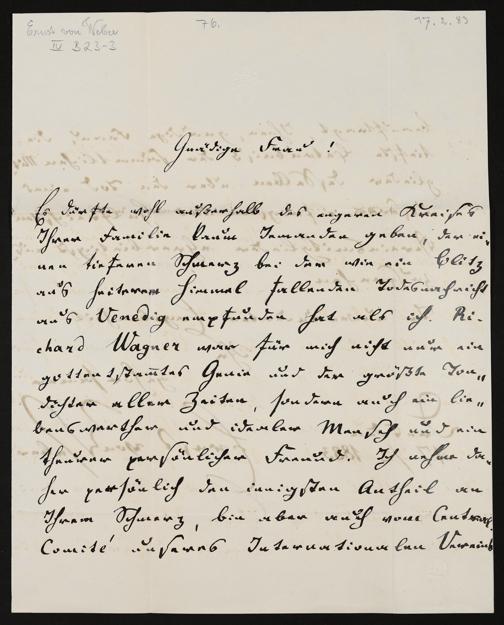 Ernst von Weber
IV B 23-3
76.
17. 2. 83
Gnädige Frau!
Es dürfte wohl außerhalb des engeren Kreises
Ihrer Familie kaum Jemanden geben, der ei-
nen tieferen Schmerz bei der wie ein Blitz
aus heiterem Himmel fallenden Todesnachricht
aus Venedig empfunden hat als ich. Ri-
chard Wagner war für mich nicht nur ein
gottentstammtes Genie und der größte Ton-
dichter aller Zeiten, sondern auch ein lie-
benswerther und idealer Mensch und ein
theurer persönlicher Freund. Ich nehme da-
her persönlich den innigsten Antheil an
Ihrem Schmerz, bin aber auch vom Central-
Comité unseres Internationalen Vereins